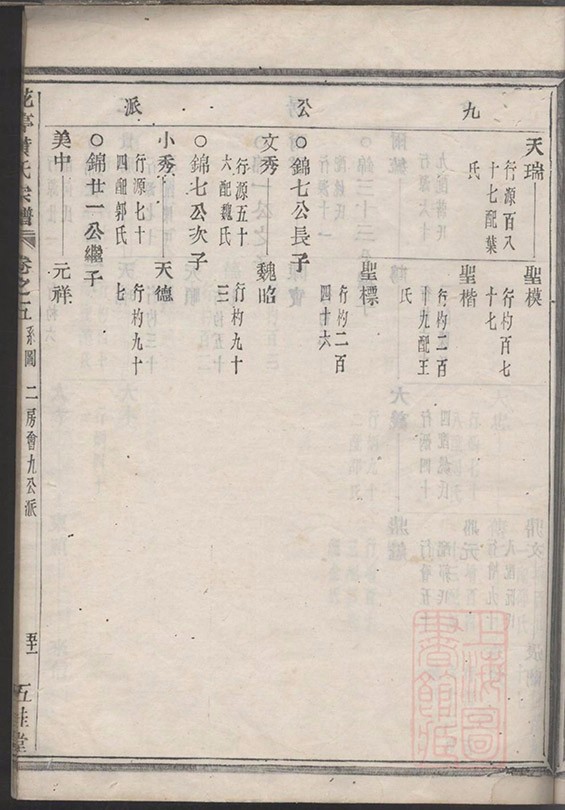 九公派
天瑞
行源百八
十七配葉
氏
聖模
行杓百七
十七
聖楷
行杓二百
九配王
氏
聖標
行杓二百
四十六
○錦七公長子
文秀
行源五十
六配魏氏
魏昭
行杓九十
三
○錦七公次子
小秀
行源七十
四配郭氏
天德
行杓九十
七
○錦廿一公繼子
美中
元祥
氏宗譜
卷之五
系圖
二房會九公派
五桂堂
上海圖書館藏